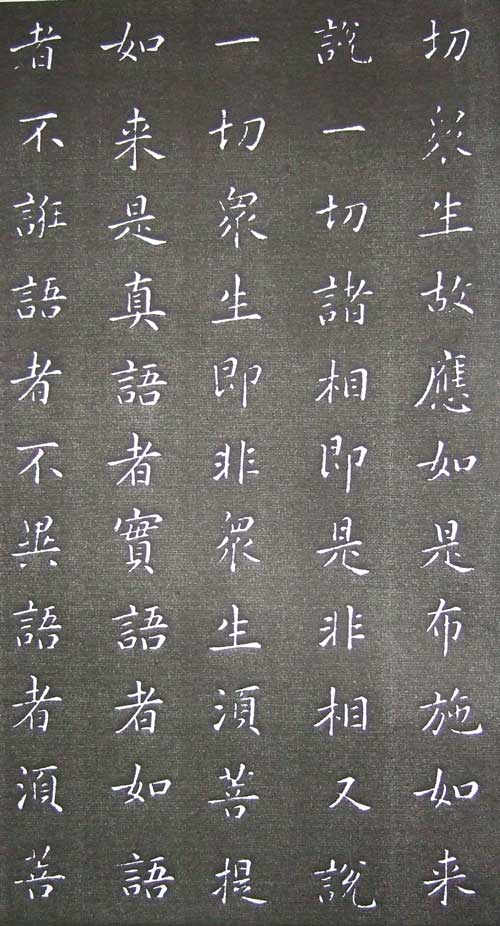 切眾生故應如是布施如来
說一切諸相即是非相又說
一切眾生即非眾生湏菩提
如来是真語者實語者如語
者不誑語者不異語者湏菩